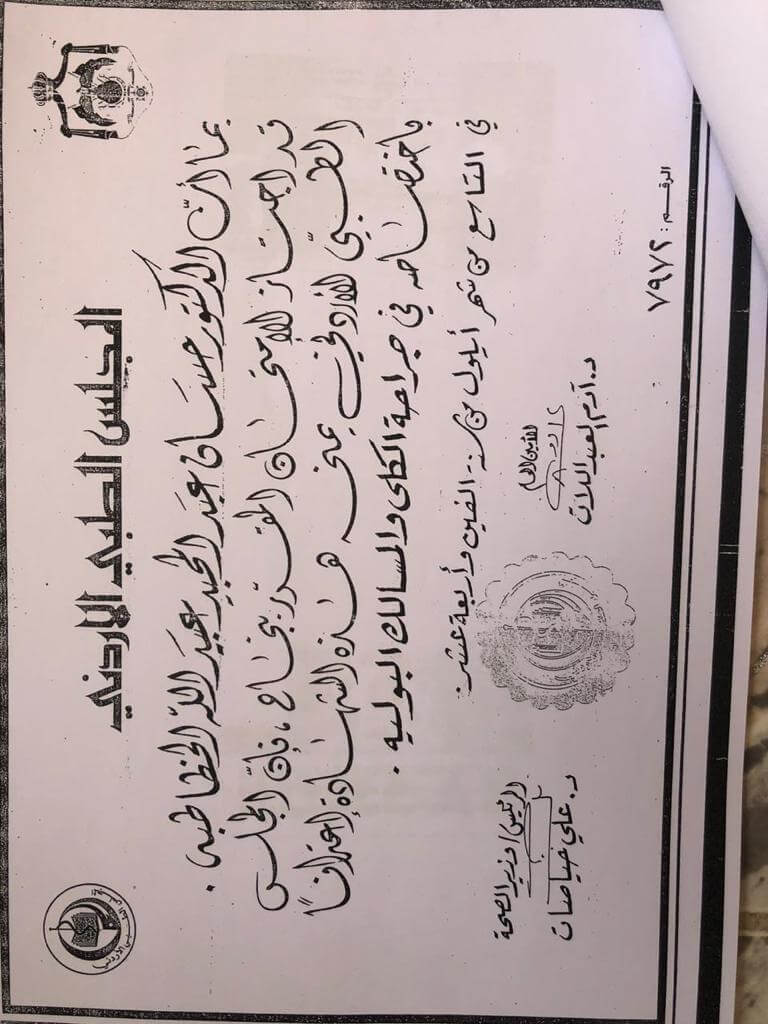 المجلس الطبي الأردني
بما أنّ الدكتور حسان عبد المجيد عبد اللّه الخطاطبه .
قد اجتاز الامتحان المقرّر بنجاح ، فإنّ المجلس
الطبّي الأردني يمنحه هذه الشهادة إعترافاً
باختصاصه في جراحة الكلى والمسالك البولية .
في التاسع من شهر أيلول من سنة الفين وأربعة عشر .
الأمين العام
د. آدم العبد اللات
الرئيس / وزير الصحة
د. علي حياصات
الرقم : ٧٩٧٢